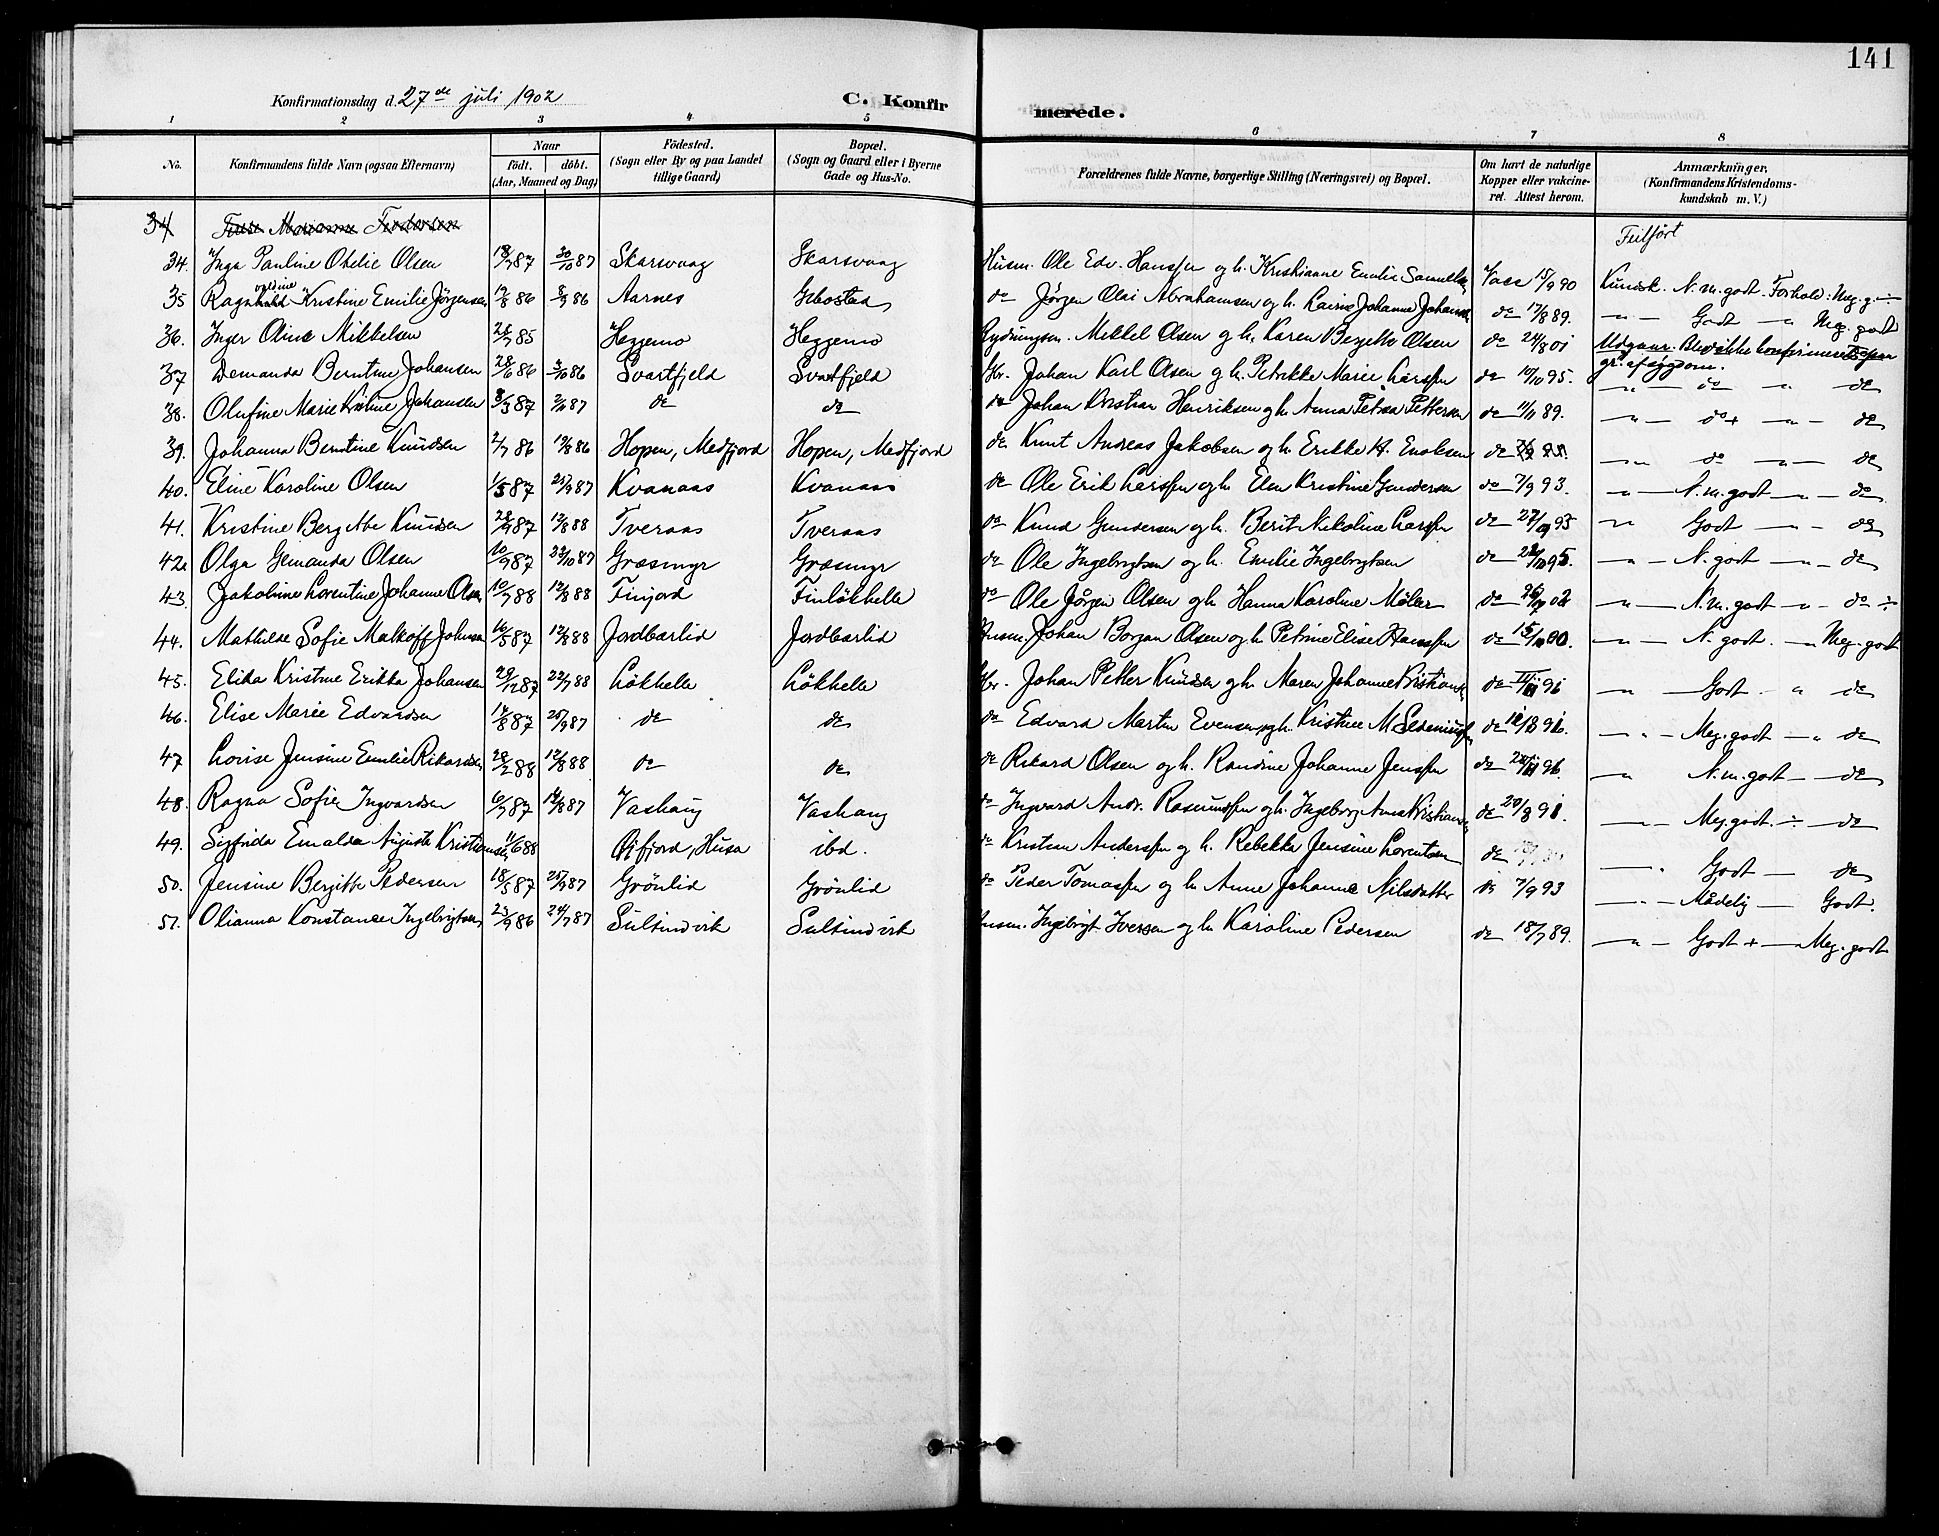 141
Konfirmationsdag d. 27de juli 1902
C. Konfirmerede.
1 2 3 4 5 6 7 8
No. Konfirmandens fulde Navn (ogsaa Efternavn) Naar født. døbt. (Aar, Maaned og Dag) Födested. (Sogn eller By og paa Landet tillige Gaard) Bopæl. (Sogn og Gaard eller i Byerne Gade og Hus-No. Forældrenes fulde Navne, borgerlige Stilling (Næringsvei) og Bopæl. Om havt de naturlige Kopper eller vakcineret. Attest herom. Anmærkninger. (Konfirmandens Kristendomskundskab m. V.)
34 Marianne Feilført
34. Inga Pauline Otelie Olsen 87 30/10 87 Skarsvaag Skarsvaag Husm. Ole Edv. Hanssen og h. Kristianne Emilie Vacc 15/9 90 Kundsk. N. m. godt. Forhold: Meg. g. ÷
35 Ragnvaldine Kristine Emilie Jörgensen 12/8 86 8/9 86 Aarnes Gibostad do Jörgen Olai Abrahamsen og h. Johanne do 17/8 89. — " — Godt — " Meg. godt
36. Inger Oline Mikkelsen 85 Heggemo Heggemo Mikkel Olsen og h. Karen Bergitte Olsen do 24/8 01 Udgaar. Blev ikke konfirmeret
37 Demanda Berntine Johansen 28/6 86 3/10 86 Svartfjeld Svartfjeld Gbr. Johan Karl Olsen og h. Petrikke Marie Larssen do 10/10 95. — " — do — " do
38. Olufine Marie Johansen 87 87 do do do Johan Kristian Henriksen og h. Anna Petrea Pettersen do 11/11 89. — " — do + — " — do
39. Johanna Berntine Knudsen 2/7 86 12/8 86 Hopen, Medfjord Hopen, Medfjord do Knut Andreas Jakobsen og h. Erikke H. Enoksen do — " do — " — do
40. Eline Karoline Olsen 1/5 87 25/9 87 Kvanaas Kvanaas do Ole Erik Larssen og h. Elen Kristine Gundersen do 7/9 93. — " — N. m. godt — " — do
41. Kristine Bergitte Knudsen 87 12/8 88 Tveraas Tveraas do Knud Gundersen og h. Berit Nikoline Larssen do 93 — " Godt — " — do
42. Olga Gemanda Olsen 10/9 87 23/10 87 Græsmyr Græsmyr do Ole Ingebrigtsen og h. Emilie Ingebrigtsen do 95. — " — N. godt — " — do
43. Jakobine Lorentine Johanne Olsen 10/7 88 12/8 88 Finjord Finlökhelle do Ole Jörgen Olsen og h. Hanna Karoline Möller do 02 — " — N. m. godt — " — do ÷
44. Mathilde Sofie Johnsen 16/5 87 88 Jordbærlid Jordbærlid Husm. Johan Borgan Olsen og h. Petrine Elise Hanssen do 90. — " — N. godt. — " Meg. godt
45. Elika Kristine Erikka Johansen 29/12 87 22/7 88 Lökhelle Lökhelle Gbr. Johan Petter Knudsen og h. Maren Johanne Kristians do 96 — " — Godt. — " do
46. Elise Marie Edvardsen 14/8 87 25/9 87 do do do Edvard Martin Evensen og h. Kristine M. do — " — Meg. godt — " do
47 Lovise Jensine Emilie Rikardsen 28/2 88 12/8 88 do do do Rikard Olsen og h. Randine Johanne Jenssen do 96. — " N. m. godt — do
48. Ragna Sofie Ingvardsen 6/7 87 14/8 87 Vashaug Vashaug do Ingvard Andr. Rasmussen og h. Ingeborg Anna do 20/8 91. — " — Meg. godt. ÷ — do
49. Sigfrida Emalda Auguste Kristiansen 11/6 88 Öifjord, Husa ibd. do Kristian Anderssen og h. Rebekka Jensine Lorentsen do — " . Godt — do
50. Jensine Bergitte Pedersen 18/5 87 25/9 87 Grönlid Grönlid do Peder Tomassen og h. Anne Johanne Nilsdatter do 7/9 93 — " — Maadelig — Godt.
51. Olianna Konstance Ingebrigtsen 23/9 86 24/7 87 Sultindvik Sultindvik Husm. Ingebrigt Iversen og h. Karoline Pedersen do 18/7 89. — " — Godt + — Meg. godt